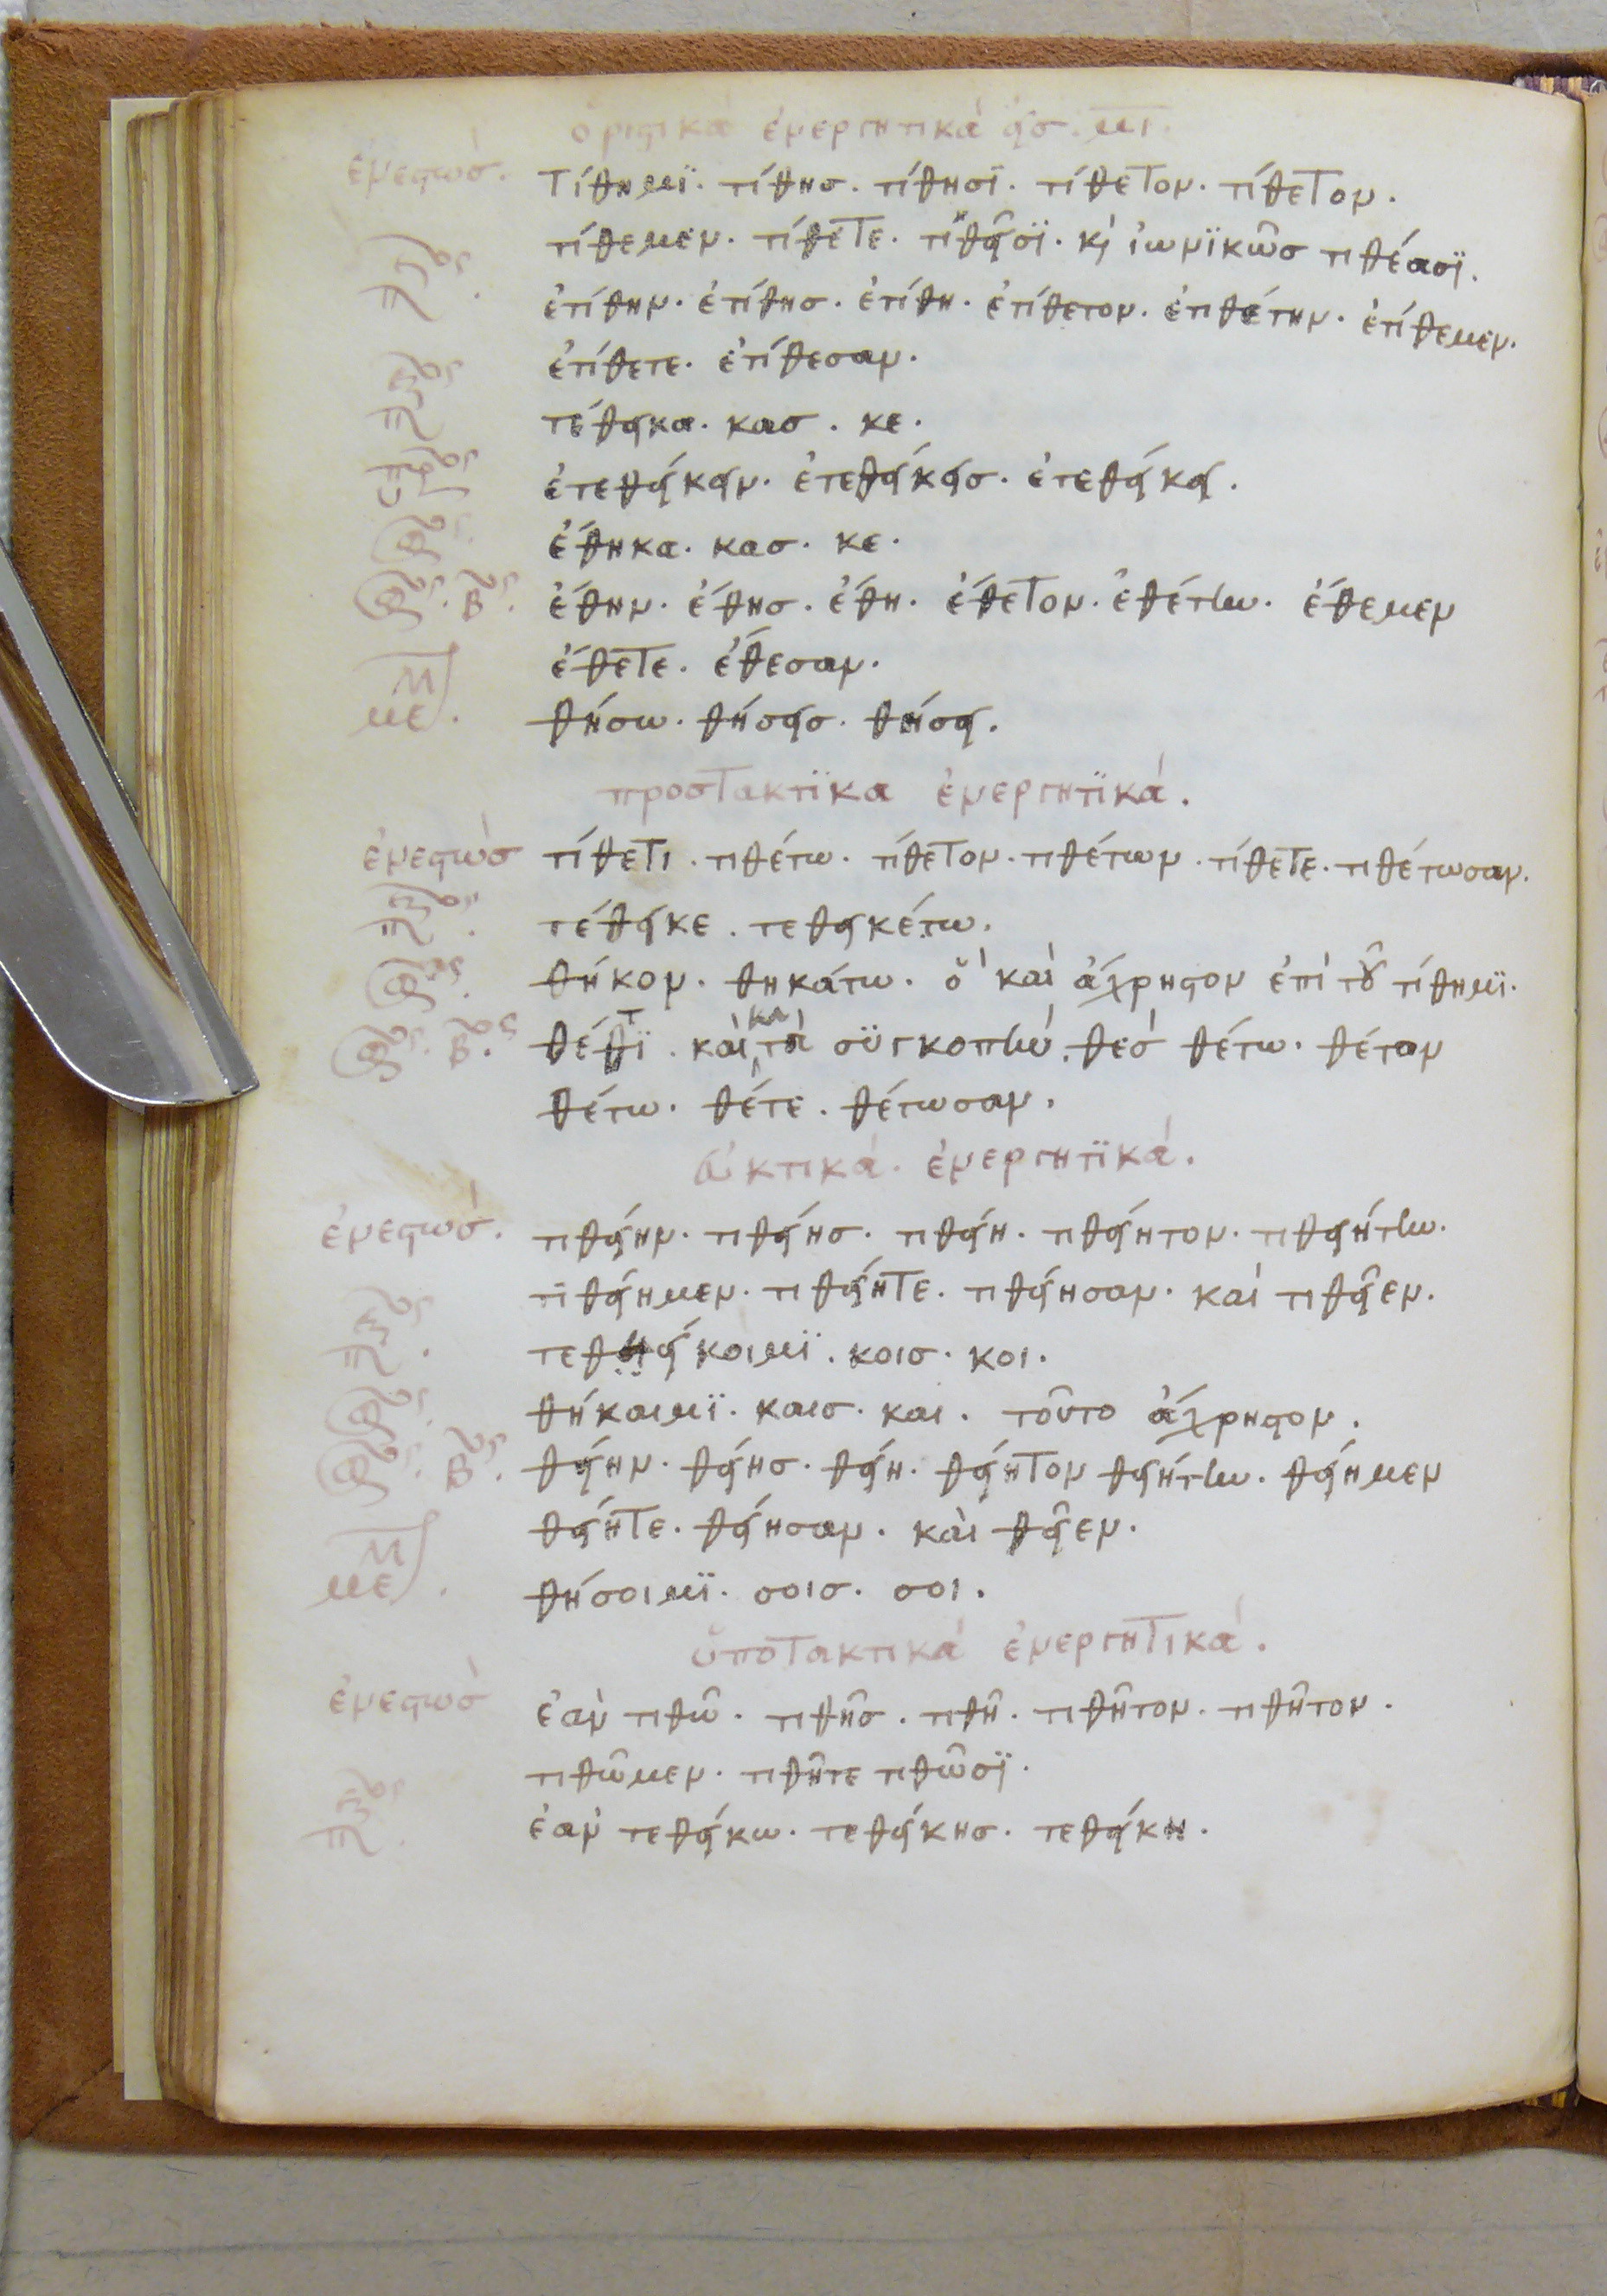 ὁριστικὰ ἐνεργητικὰ εἰς. μι.
ἐνεστώσ. Τίθημϊ. τίθησ. τίθησϊ. τίθετον. τίθετον.
τίθεμεν. τίθετε. τιθεῖσϊ. κὶ ἰωνϊκῶσ τιθέασϊ.
ἐτίθην. ἐτίθησ. ἐτίθη. ἐτίθετον. ἐτιθέτην. ἐτίθεμεν.
ἐτίθετε. ἐτίθεσαν.
τέθεικα. κασ. κε.
ἐτεθείκειν. ἐτεθείκεισ. ἐτεθείκει.
ἔθηκα. κασ. κε.
β. ἔθην. ἔθησ. ἔθη. ἔθετον. ἐθέτην. ἔθεμεν
ἔθετε. ἔθεσαν.
με. θήσω. θήσεισ. θήσει.
προστακτϊκα ἐνεργητϊκά.
ἐνεστὼσ τίθετι. τιθέτω. τίθετον. τιθέτων. τίθετε. τιθέτωσαν.
τέθεικε. τεθεικέτω.
θήκον. θηκάτω. ὃ καὶ ἄχρηστον ἐπὶ τοῦ τίθημϊ.
β. θέθϊ. καὶ κατὰ σϋγκοπὴν. θεσ θέτω. θέτον
θέτω. θέτε. θέτωσαν.
εὐκτικά. ἐνεργητϊκά.
ἐνεστώσ. τιθείην. τιθείησ. τιθείη. τιθείητον. τιθειήτην.
τιθείημεν. τιθείητε. τιθείησαν. καὶ τιθεῖεν.
τεθείκοιμϊ. κοισ. κοι.
θήκαιμϊ. καισ. και. τοῦτο ἄχρηστον.
β. θείην. θείησ. θείη. θείητον θειήτην. θείημεν
θείητε. θείησαν. καὶ θεῖεν.
με. θήσοιμϊ. σοισ. σοι.
ὑποτακτικὰ ἐνεργητικά.
ἐνεστὼσ ἐὰν τιθῶ. τιθῆσ. τιθῆ. τιθῆτον. τιθῆτον.
τιθῶμεν. τιθῆτε τιθῶσϊ.
ἐὰν τεθείκω. τεθείκησ. τεθείκη.